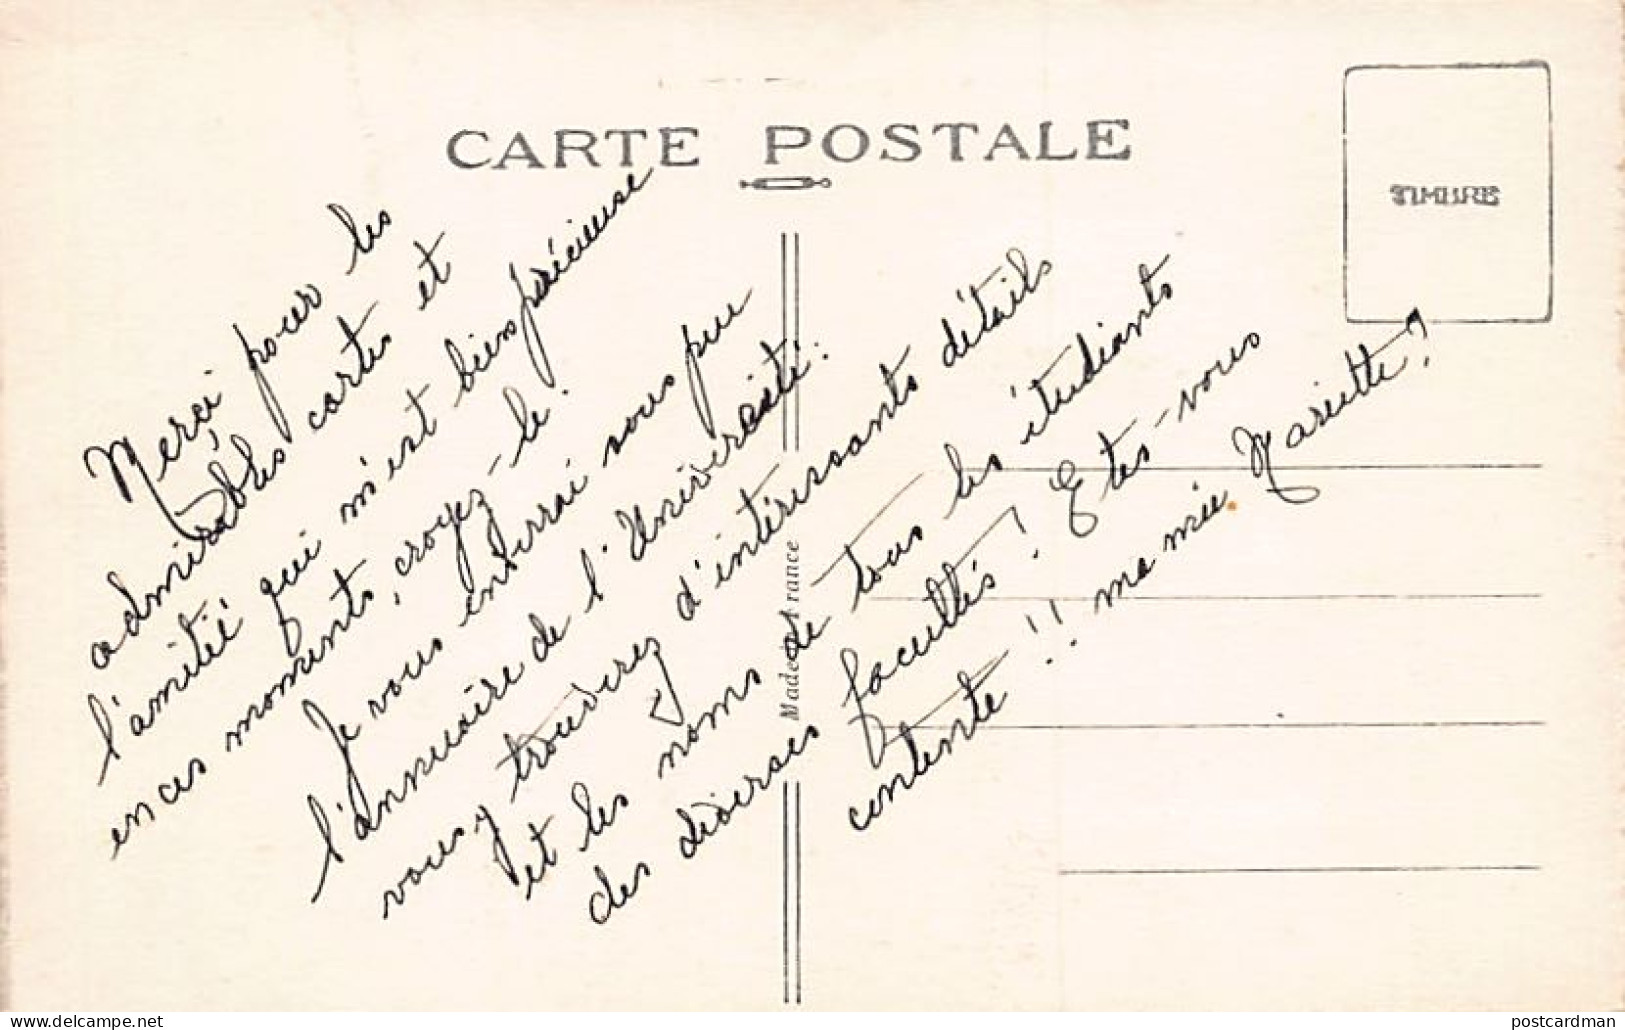 CARTE POSTALE
TIMBRE
Merci pour les
admirables cartes et
l'amitié qui m'est bien précieuse
en ces moments, croyez-le.
Je vous enverrai sous peu
l'annuaire de l'Université.
vous y trouverez d'intéressants détails
et les noms de tous les étudiants
des diverses facultés! Etes-vous
contente!! ma mie Mariette?
Made in France
www.delcampe.net
postcardman